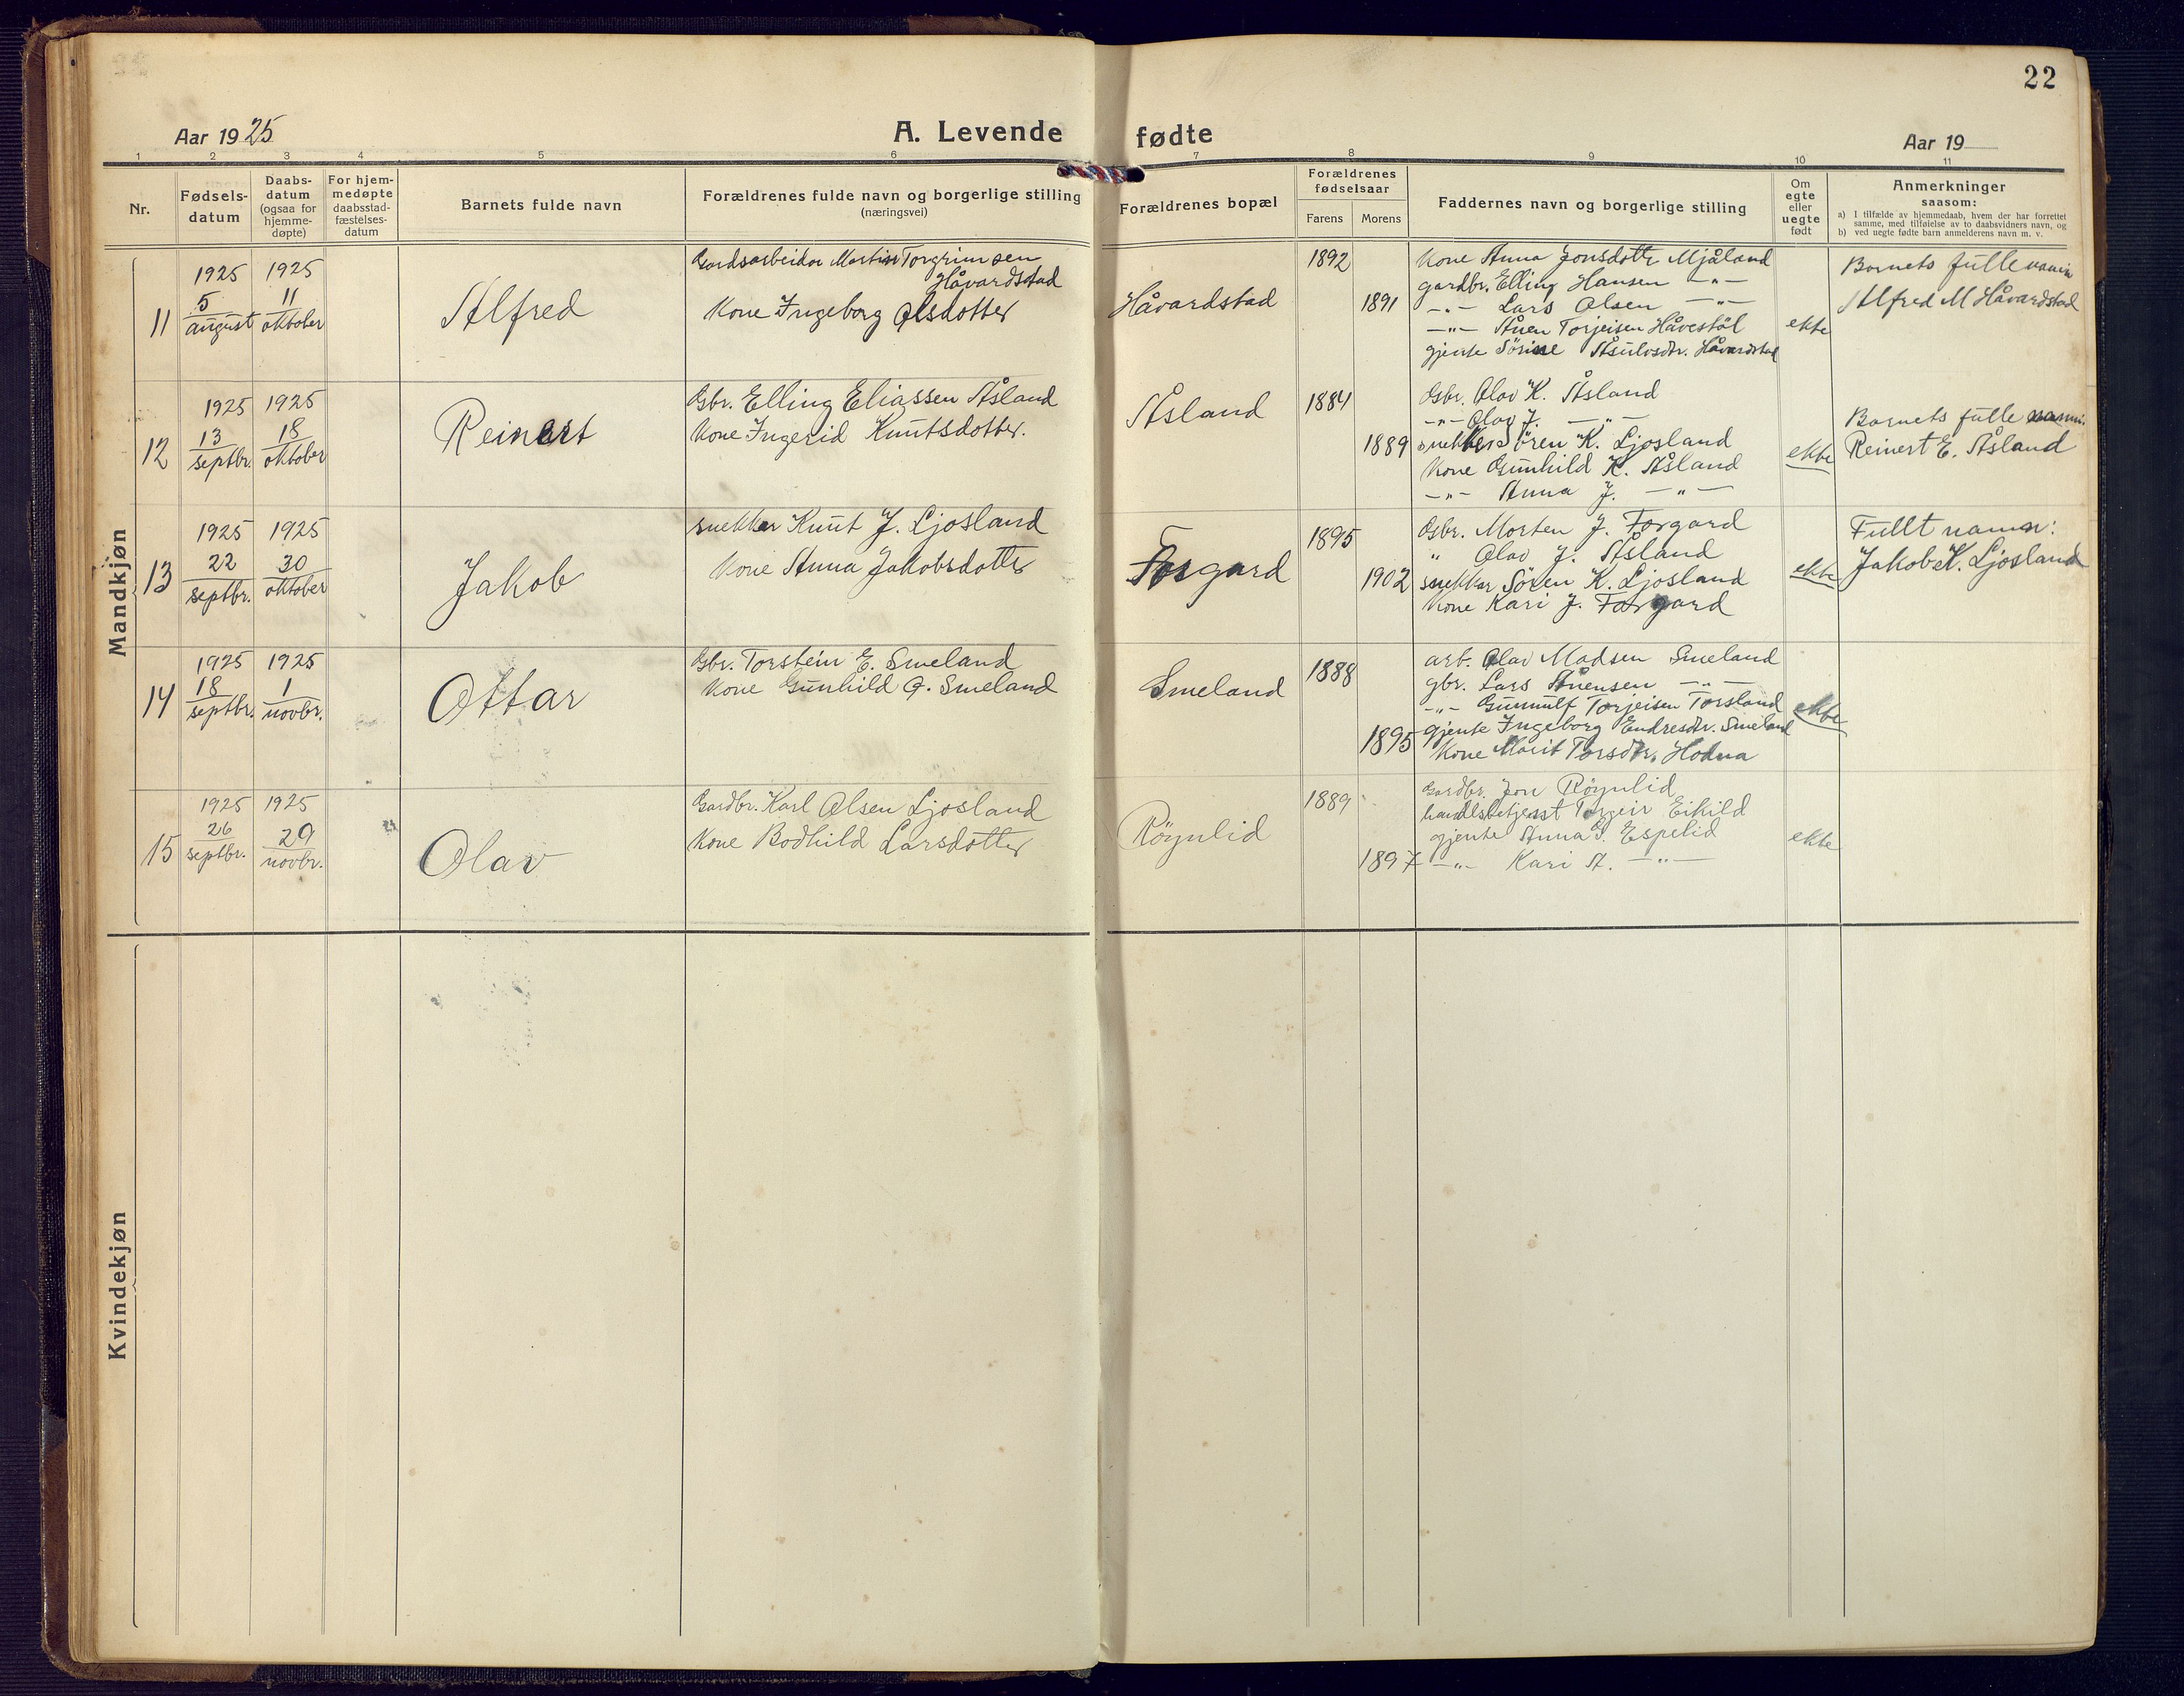 22
Aar 1925
A. Levende fødte
Aar 19
1 2 3 4 5 6 7 8 9 10 11
Nr.
Fødsels-
datum
Daabs-
datum
(ogsaa for
hjemme-
døpte)
For hjem-
medøpte
daabsstad-
fæstelses-
datum
Barnets fulde navn
Forældrenes fulde navn og borgerlige stilling
(næringsvei)
Forældrenes bopæl
Forældrenes
fødselsaar
Farens
Morens
Faddernes navn og borgerlige stilling
Om
egte
eller
uegte
født
Anmerkninger
saasom:
a) I tilfælde av hjemmedaab, hvem der har forrettet
samme, med tilføielse av to daabsvidners navn, og
b) ved uegte fødte barn anmelderens navn m. v.
Mandkjøn
11
1925
5
august
1925
11
oktober
Alfred
Gardsarbeidar Martin Torgrimsen
Håvardstad
Kone Ingeborg Olsdotter
Håvardstad
1892
1891
Kone Anna Jonsdottr Mjåland
gardbr. Elling Hansen —"—
—"— Lars Olsen —"—
—"— Ånen Torjeisen Håvestöl
gjente Sörine Åsulvsdtr. Håvardstad
ekte
Barnets fulle namn
Alfred M Håvardstad
12
1925
13
septbr.
1925
18
oktober
Reinert
Gbr. Elling Eliassen Åsland
Kone Ingerid Knutsdotter.
Åsland
1884
1889
Gbr. Olav K. Åsland
—"— Olav J. —"—
snekker Sören K. Ljosland
Kone Gunhild K. Åsland
—"— Anna J. —"—
ekte
Barnets fulle namn:
Reinert E. Åsland
13
1925
22
septbr.
1925
30
oktober
Jakob
snekkar Knut J. Ljosland
Kone Anna Jakobsdotter
Fosgard
1895
1902
Gbr. Morten J. Forgard
" Olav J. Åsland
snekkar Sören K. Ljosland
Kone Kari J. Forgard
ekte
Fullt namn:
Jakob K. Ljosland
14
1925
18
septbr.
1925
1
novbr.
Ottar
Gbr. Torstein E. Smeland
Kone Gunhild G. Smeland
Smeland
1888
1895
arb. Olav Madsen Smeland
gbr. Lars Ånensen —"—
—"— Gunnulf Torjeisen Torsland
gjente Ingeborg Endresdtr. Smeland
Kone Marit Torsdtr. Hodna
ekte
15
1925
26
septbr.
1925
29
novbr.
Olav
Gardbr. Karl Olsen Ljosland
Kone Bodhild Larsdotter
Röynlid
1889
1897
Gardbr. Jon Röynlid
handlsbetjent Torgeir Eikild
gjente Anna G. Espelid
—"— Kari A. —"—
ekte
Kvindekjøn